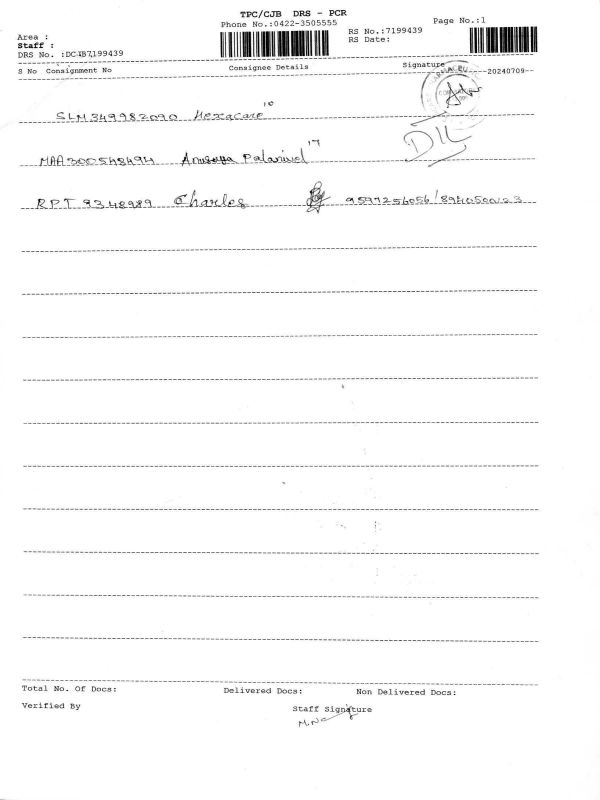 TPC/CJB DRS - PCR
Phone No.:0422-3505555
Page No.:1
RS No.:7199439
RS Date:
Area :
Staff :
DRS No. :DC4B7199439
S No Consignment No Consignee Details Signature
20240709
SLM349982090 Hexacare 10
MAA300548494 Anusuya Palanivel 17
RPT 9348989 Charles 9597256056/8940500123
DIL
Total No. Of Docs: Delivered Docs: Non Delivered Docs:
Verified By Staff Signature